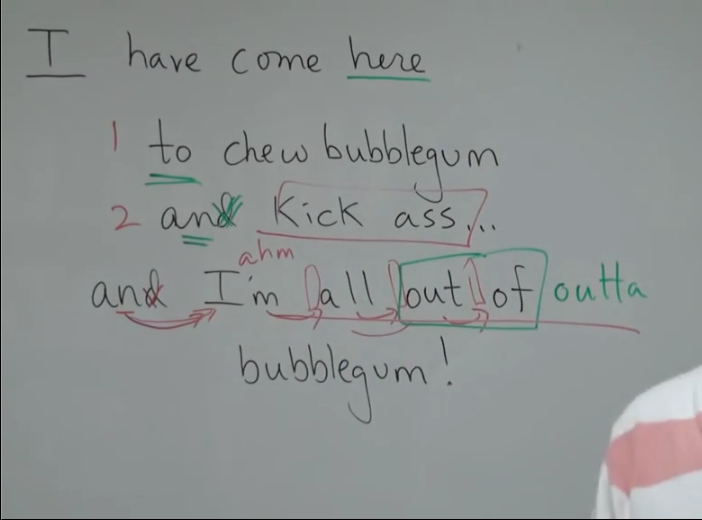 I have come here
1 to chew bubblegum
2 and kick ass...
ahm
and I'm all out of outta
bubblegum!